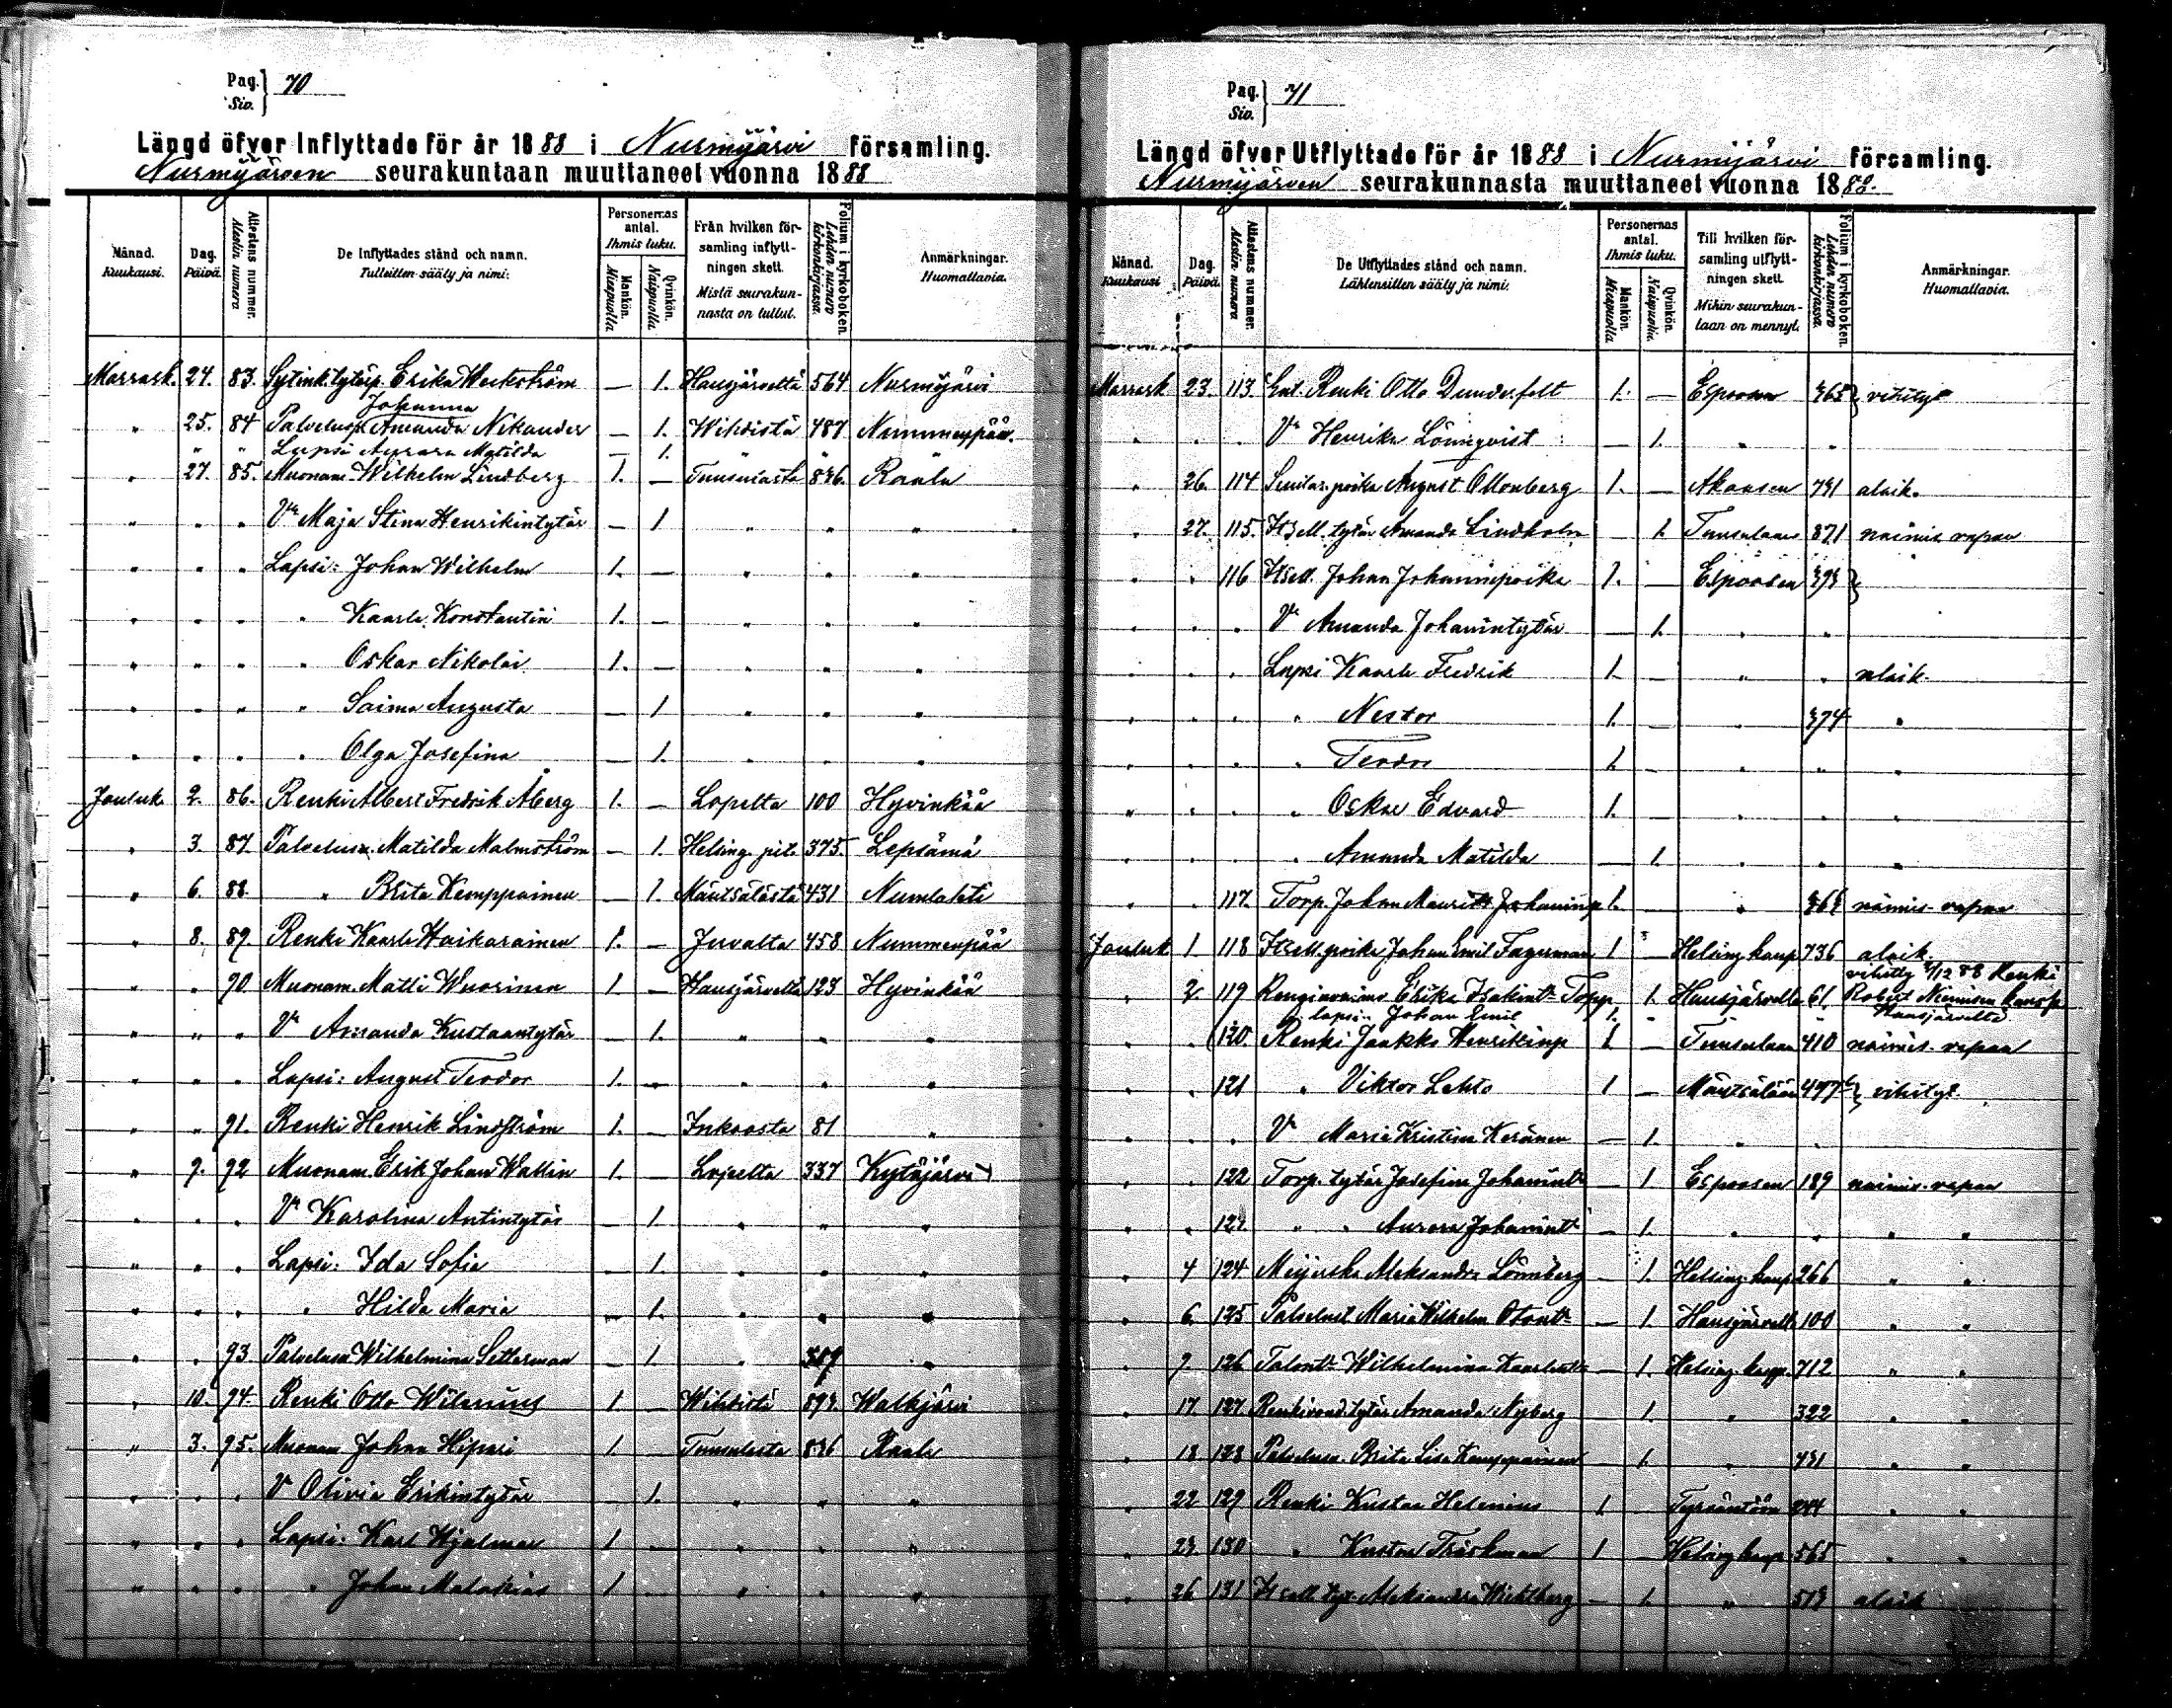 Pag. Siv. } 70
Längd öfver Inflyttade för år 1888 i Nurmijärvi församling.
Nurmijärven seurakuntaan muuttaneet vuonna 1888
Månad. Kuukausi. Dag. Päivä. Attestens nummer. Alestin numero De Inflyttades stånd och namn. Tulleitten sääly ja nimi: Personernas antal. Ihmis luku. Mankön. Miespuolia Qvinkön. Naispuolia Från hvilken församling inflyttningen skett. Mistä seurakunnasta on tullut. Folium i kyrkoboken. Lehden numero kirkonkirjassa. Anmärkningar. Huomattavia.
Marrask. 24. 83. Erika Weckström — 1. Hausjärveltä 564 Nurmijärvi
Johanna
" 25. 84 Palvelusp. Amanda Nikander — 1. Wihdistä 487 Nummenpää.
" " Lapsi Aurora Matilda — 1.
" 27. 85. Muonam. Wilhelm Lindberg 1. — Tuusulasta 836. Raala
" " " Vo Maja Stina Henrikintytär — 1 " " "
" " " Lapsi: Johan Wilhelm 1. — " " "
" " " " Kaarle Konstantin 1. — " " "
" " " " Oskar Nikolai 1. — " " "
" " " " Saima Augusta — 1 " " "
" " " " Olga Josefina — 1. " " "
Jouluk. 2. 86. Renki Albert Fredrik Åberg 1. — Lopelta 100 Hyvinkää
" 3. 87. Palvelusp. Matilda Malmström — 1. Helsing. pit. 375. Lepsämä
" 6. 88. " Brita Kemppainen — 1. Mäntsälästä 431 Numlahti
" 8. 89. Renki Kaarle Haikarainen 1. — 458 Nummenpää
" " 90 Muonam. Matti Wuorinen 1 — Hausjärveltä 123 Hyvinkää
" " " Vo Amanda Kustaantytär — 1. " " "
" " " Lapsi: August Teodor 1. — " " "
" " 91. Renki Henrik Lindström 1. — Inkoosta 81 "
" 9. 92 Muonam. Erik Johan Wallin 1. — Lopelta 337 Kytäjärvi
" " " Vo Karolina Antintytär — 1 " " "
" " " Lapsi: Ida Sofia — 1 " " "
" " " " Hilda Maria — 1. " " "
" " 93 Palvelusp. Wilhelmina Setterman — 1 " "
" 10. 94. Renki Otto Wilenius 1. — Wihdistä 893. Walkjärvi
" 3. 95. Muonam Johan Hipsi 1. Tuusulasta 836 Raala
" " " Vo Olivia Erikintytär — 1. " " "
" " " Lapsi: Karl Hjalmar 1 — " " "
" " " " Johan Malakias 1 " " "
Pag. Siv. } 71
Längd öfver Utflyttade för år 1888 i Nurmijärvi församling.
Nurmijärven seurakunnasta muuttaneet vuonna 1888.
Månad. Kuukausi Dag. Päivä. Attestens nummer. Alestin numero De Utflyttades stånd och namn. Lähteneitten sääly ja nimi: Personernas antal. Ihmis luku. Mankön. Miespuolia Qvinkön. Naispuolia. Till hvilken församling utflyttningen skett. Mihin seurakuntaan on mennyt. Folium i kyrkoboken. Lehden numero kirkonkirjassa. Anmärkningar. Huomattavia.
Marrask 23. 113. Renki Otto Dundersfelt 1. — Espoosen 365 } vihityt
" " " Vo Henrika Lönnqvist — 1. " "
" 26. 114 August Ottonberg 1. — Akaasen 791 alaik.
" 27. 115. Itsell. tytär Amanda Lindholm 1. Tuusulaan 821 naimis. vapaa
" " 116 Itsell. Johan Johaninpoika 1. — Espoosen 393 }
" " " Vo Amanda Johanintytär — 1. " "
" " " Lapsi Kaarle Fredrik 1. — " " alaik.
" " " " Nestor 1. — " 374 "
" " " " Teodor 1. " " "
" " " " Oskar Edvard 1. " " "
" " " " Amanda Matilda — 1. " " "
" " 117. Torp. Johan Maurits Johaninp 1. — " 369 naimis. vapaa
Jouluk 1 118 Itsell. poika Johan Emil Fagerman 1 Helsing. kaup 736 alaik.
vihitty 2/12 88 Renki
" 2. 119 Erika Isakint. Topp 1. Hausjärvelle 61, Robert Nieminen kanssa
lapsi Johan Emil 1. " Hausjärveltä
" " 120. Renki Jaakko Henrikinp 1. — Tuusulaan 410 naimis. vapaa
" " 121 " Viktor Lehto 1 — Mäntsälään 497 } vihityt
" " " Vo Maria Kristina Keränen — 1. " "
" " 122 Torp. tytär Josefina Johanint. — 1 Espoosen 189 naimis. vapaa
" " 123. " " Aurora Johanint. — 1. " " " "
" 4 124 Meijerska Aleksandra Lönnberg — 1. Helsing. kaup 266 " "
" 6. 125 Palvelust. Maria Wilhelm. Ottont. — 1. Hausjärvelle 100 " "
" 9. 126 Talont. Wilhelmina Kaarlent. — 1. Helsing. kaup. 712 " "
" 17. 127. tytär Amanda Nyberg 1. " 322 " "
" 18 128 Palvelusp. Brita Lisa Kemppainen — 1. " 431 " "
" 22 129 Renki Kustaa Helenius 1 Tyrväntöön 244 " "
" 23. 130 " Kustaa Träskman 1 — Helsing kaup 565 " "
" 26 131 Itsell. tyt. Aleksandra Wichtberg — 1. " 519 alaik